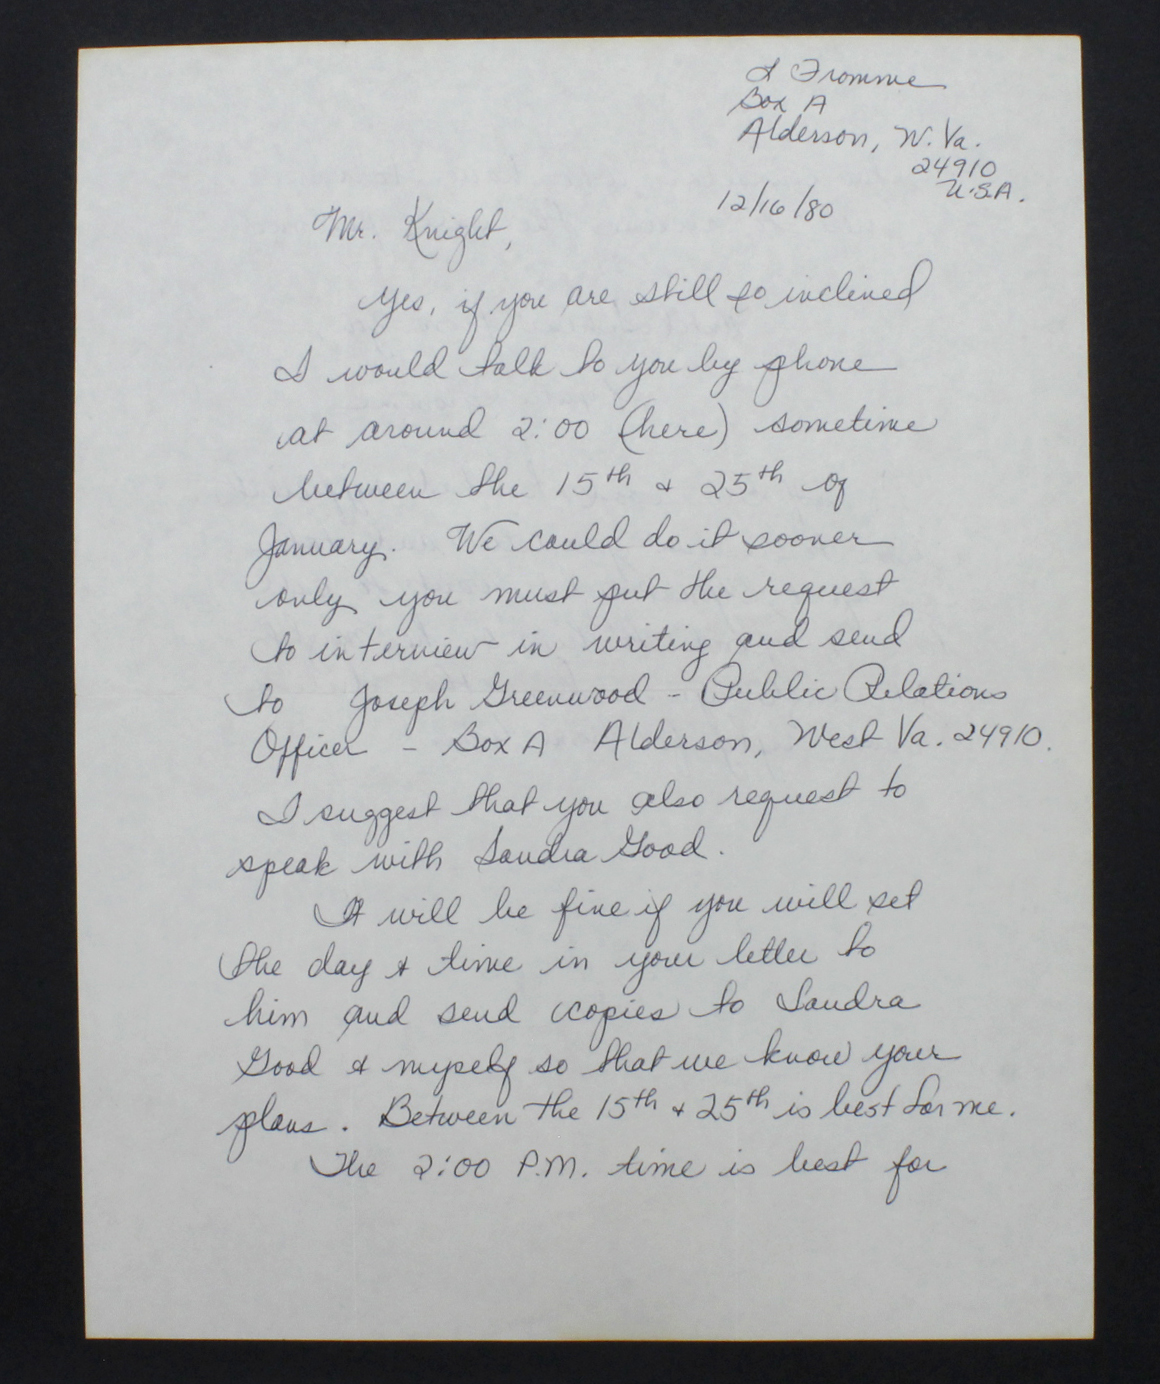 L Fromme
Box A
Alderson, W. Va.
24910
U.S.A.
12/16/80
Mr. Knight,
Yes, if you are still so inclined
I would talk to you by phone
at around 2:00 (here) sometime
between the 15th & 25th of
January. We could do it sooner
only you must put the request
to interview in writing and send
to Joseph Greenwood - Public Relations
Officer - Box A Alderson, West Va. 24910.
I suggest that you also request to
speak with Sandra Good.
It will be fine if you will set
the day & time in your letter to
him and send copies to Sandra
Good & myself so that we know your
plans. Between the 15th & 25th is best for me.
The 2:00 P.M. time is best for